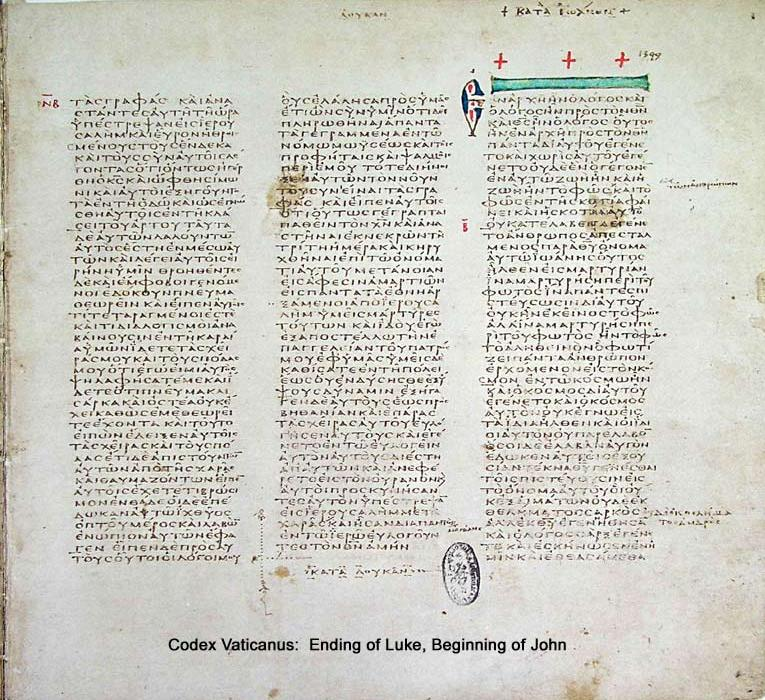 ΛΟΥΚΑΝ
+ ΚΑΤΑ ΙΩΑΝΝΗΝ +
1349
ΝΒ
ΤΑΣΓΡΑΦΑΣ ΚΑΙΑΝΑ
ΣΤΑΝΤΕΣΑΥΤΗΤΗΩΡΑ
ΥΠΕΣΤΡΕΨΑΝΕΙΣΙΕΡΟΥ
ΣΑΛΗΜΚΑΙΕΥΡΟΝΗΘΡΟΙ
ΣΜΕΝΟΥΣΤΟΥΣΕΝΔΕΚΑ
ΚΑΙΤΟΥΣΣΥΝΑΥΤΟΙΣΛΕ
ΓΟΝΤΑΣΟΤΙΟΝΤΩΣΗΓΕΡ
ΘΗΟΚΣΚΑΙΩΦΘΗΣΙΜΩ
ΝΙΚΑΙΑΥΤΟΙΕΞΗΓΟΥΝΤΟ
ΤΑΕΝΤΗΟΔΩΚΑΙΩΣΕΓΝΩ
ΣΘΗΑΥΤΟΙΣΕΝΤΗΚΛΑ
ΣΕΙΤΟΥΑΡΤΟΥΤΑΥΤΑ
ΔΕΑΥΤΩΝΛΑΛΟΥΝΤΩ
ΑΥΤΟΣΕΣΤΗΕΝΜΕΣΩΑΥ
ΤΩΝΚΑΙΛΕΓΕΙΑΥΤΟΙΣΕΙ
ΡΗΝΗΥΜΙΝ ΘΡΟΗΘΕΝΤΕΣ
ΔΕΚΑΙΕΜΦΟΒΟΙΓΕΝΟΜΕ
ΝΟΙΕΔΟΚΟΥΝΠΝΕΥΜΑ
ΘΕΩΡΕΙΝ ΚΑΙΕΙΠΕΝΑΥΤΟΙΣ
ΤΙΤΕΤΑΡΑΓΜΕΝΟΙΕΣΤΕ
ΚΑΙΤΙΔΙΑΛΟΓΙΣΜΟΙΑΝΑ
ΒΑΙΝΟΥΣΙΝΕΝΤΗΚΑΡΔΙ
ΑΥΜΩΝΙΔΕΤΕΤΑΣΧΕΙ
ΡΑΣΜΟΥΚΑΙΤΟΥΣΠΟΔΑΣ
ΜΟΥΟΤΙΕΓΩΕΙΜΙΑΥΤΟΣ
ΨΗΛΑΦΗΣΑΤΕΜΕΚΑΙΙ
ΔΕΤΕΟΤΙΠΝΕΥΜΑ
ΣΑΡΚΑΚΑΙΟΣΤΕΑΟΥΚΕ
ΧΕΙΚΑΘΩΣΕΜΕΘΕΩΡΕΙ
ΤΕΕΧΟΝΤΑ ΚΑΙΤΟΥΤΟ
ΕΙΠΩΝΕΔΕΙΞΕΝΑΥΤΟΙΣ
ΤΑΣΧΕΙΡΑΣΚΑΙΤΟΥΣΠΟ
ΔΑΣΕΤΙΔΕΑΠΙΣΤΟΥΝΤΩ
ΑΥΤΩΝΑΠΟΤΗΣΧΑΡΑΣ
ΚΑΙΘΑΥΜΑΖΟΝΤΩΝΕΙΠΕ
ΑΥΤΟΙΣΕΧΕΤΕΤΙΒΡΩΣΙ
ΜΟΝΕΝΘΑΔΕΟΙΔΕΕΠΕ
ΔΩΚΑΝΑΥΤΩΙΧΘΥΟΣ
ΟΠΤΟΥΜΕΡΟΣΚΑΙΛΑΒΩ
ΕΝΩΠΙΟΝΑΥΤΩΝΕΦΑ
ΓΕΝ ΕΙΠΕΝΔΕΠΡΟΣΑΥ
ΤΟΥΣΟΥΤΟΙΟΙΛΟΓΟΙΜΟΥ
ΟΥΣΕΛΑΛΗΣΑΠΡΟΣΥΜΑΣ
ΕΤΙΩΝΣΥΝΥΜΙΝΟΤΙΔΕΙ
ΠΛΗΡΩΘΗΝΑΙΠΑΝΤΑ
ΤΑΓΕΓΡΑΜΜΕΝΑΕΝΤΩ
ΝΟΜΩΜΩΥΣΕΩΣΚΑΙΤΟΙΣ
ΠΡΟΦΗΤΑΙΣΚΑΙΨΑΛΜΟΙΣ
ΠΕΡΙΕΜΟΥ ΤΟΤΕΔΙΗΝΟΙ
ΞΕΝΑΥΤΩΝΤΟΝΝΟΥΝ
ΤΟΥΣΥΝΙΕΝΑΙΤΑΣΓΡΑ
ΦΑΣ ΚΑΙΕΙΠΕΝΑΥΤΟΙΣ
ΟΤΙΟΥΤΩΣΓΕΓΡΑΠΤΑΙ
ΠΑΘΕΙΝΤΟΝΧΝΚΑΙΑΝΑ
ΣΤΗΝΑΙΕΚΝΕΚΡΩΝΤΗ
ΤΡΙΤΗΗΜΕΡΑΚΑΙΚΗΡΥ
ΧΘΗΝΑΙΕΠΙΤΩΟΝΟΜΑ
ΤΙΑΥΤΟΥΜΕΤΑΝΟΙΑΝ
ΕΙΣΑΦΕΣΙΝΑΜΑΡΤΙΩΝ
ΕΙΣΠΑΝΤΑΤΑΕΘΝΗΑΡ
ΞΑΜΕΝΟΙΑΠΟΙΕΡΟΥΣΑ
ΛΗΜΥΜΕΙΣΜΑΡΤΥΡΕΣ
ΤΟΥΤΩΝ ΚΑΙΙΔΟΥΕΓΩ
ΕΞΑΠΟΣΤΕΛΛΩΤΗΝΕ
ΠΑΓΓΕΛΙΑΝΤΟΥΠΑΤΡΟΣ
ΜΟΥΕΦΥΜΑΣΥΜΕΙΣΔΕ
ΚΑΘΙΣΑΤΕΕΝΤΗΠΟΛΕΙ
ΕΩΣΟΥΕΝΔΥΣΗΣΘΕΕΞΥ
ΨΟΥΣΔΥΝΑΜΙΝ ΕΞΗΓΑ
ΓΕΝΔΕΑΥΤΟΥΣΕΩΣΠΡΟΣ
ΒΗΘΑΝΙΑΝΚΑΙΕΠΑΡΑΣ
ΤΑΣΧΕΙΡΑΣΑΥΤΟΥΕΥΛΟ
ΓΗΣΕΝΑΥΤΟΥΣΚΑΙΕΓΕ
ΝΕΤΟΕΝΤΩΕΥΛΟΓΕΙΝ
ΑΥΤΟΝΑΥΤΟΥΣΔΙΕΣΤΗ
ΑΠΑΥΤΩΝΚΑΙΑΝΕΦΕ
ΡΕΤΟΕΙΣΤΟΝΟΥΡΑΝΟΝ
ΑΥΤΟΙΠΡΟΣΚΥΝΗΣΑΝ
ΤΕΣΑΥΤΟΝΥΠΕΣΤΡΕΨΑ
ΕΙΣΙΕΡΟΥΣΑΛΗΜΜΕΤΑ
ΧΑΡΑΣΚΑΙΗΣΑΝΔΙΑΠΑΝΤΟΣ
ΕΝΤΩΙΕΡΩΕΥΛΟΓΟΥΝ
ΤΕΣΤΟΝΘΝΑΜΗΝ
ΚΑΤΑ ΛΟΥΚΑΝ
ΕΝΑΡΧΗΗΝΟΛΟΓΟΣΚΑΙ
ΟΛΟΓΟΣΗΝΠΡΟΣΤΟΝΘΝ
ΚΑΙΘΣΗΝΟΛΟΓΟΣ ΟΥΤΟΣ
ΗΝΕΝΑΡΧΗΠΡΟΣΤΟΝΘΝ
ΠΑΝΤΑΔΙΑΥΤΟΥΕΓΕΝΕ
ΤΟΚΑΙΧΩΡΙΣΑΥΤΟΥΕΓΕ
ΝΕΤΟΟΥΔΕΕΝΟΓΕΓΟΝΕ
ΕΝΑΥΤΩΖΩΗΗΝΚΑΙΗ
ΖΩΗΗΝΤΟΦΩΣΚΑΙΤΟ
ΦΩΣΕΝΤΗΣΚΟΤΙΑΦΑΙ
ΝΕΙΚΑΙΗΣΚΟΤΙΑΑΥΤΟ
Β
ΟΥΚΑΤΕΛΑΒΕΝΕΓΕΝΕ
ΤΟΑΝΘΡΩΠΟΣΑΠΕΣΤΑΛ
ΜΕΝΟΣΠΑΡΑΘΥΟΝΟΜΑ
ΑΥΤΩΙΩΑΝΗΣΟΥΤΟΣ
ΗΛΘΕΝΕΙΣΜΑΡΤΥΡΙΑΝ
ΙΝΑΜΑΡΤΥΡΗΣΗΠΕΡΙΤΟΥ
ΦΩΤΟΣΙΝΑΠΑΝΤΕΣΠΙ
ΣΤΕΥΣΩΣΙΝΔΙΑΥΤΟΥ
ΟΥΚΗΝΕΚΕΙΝΟΣΤΟΦΩΣ
ΑΛΛΙΝΑΜΑΡΤΥΡΗΣΗΠΕ
ΡΙΤΟΥΦΩΤΟΣ ΗΝΤΟΦΩΣ
ΤΟΑΛΗΘΙΝΟΝΟΦΩΤΙ
ΖΕΙΠΑΝΤΑΑΝΘΡΩΠΟΝ
ΕΡΧΟΜΕΝΟΝΕΙΣΤΟΝΚΟ
ΣΜΟΝ ΕΝΤΩΚΟΣΜΩΗΝ
ΚΑΙΟΚΟΣΜΟΣΔΙΑΥΤΟΥ
ΕΓΕΝΕΤΟΚΑΙΟΚΟΣΜΟΣ
ΑΥΤΟΝΟΥΚΕΓΝΩΕΙΣ
ΤΑΙΔΙΑΗΛΘΕΝΚΑΙΟΙΙΔΙ
ΟΙΑΥΤΟΝΟΥΠΑΡΕΛΑΒΟ
ΟΣΟΙΔΕΕΛΑΒΟΝΑΥΤΟΝ
ΕΔΩΚΕΝΑΥΤΟΙΣΕΞΟΥ
ΣΙΑΝΤΕΚΝΑΘΥΓΕΝΕΣΘΑΙ
ΤΟΙΣΠΙΣΤΕΥΟΥΣΙΝΕΙΣ
ΤΟΟΝΟΜΑΑΥΤΟΥΟΙΟΥ
ΚΕΞΑΙΜΑΤΩΝΟΥΔΕΕΚ
ΘΕΛΗΜΑΤΟΣΣΑΡΚΟΣ
ΑΛΛΕΚΘΥΕΓΕΝΝΗΘΗΣΑ
ΚΑΙΟΛΟΓΟΣΣΑΡΞΕΓΕΝΕ
ΤΟΚΑΙΕΣΚΗΝΩΣΕΝΕΝΗ
ΜΙΝΚΑΙΕΘΕΑΣΑΜΕΘΑ
Codex Vaticanus: Ending of Luke, Beginning of John